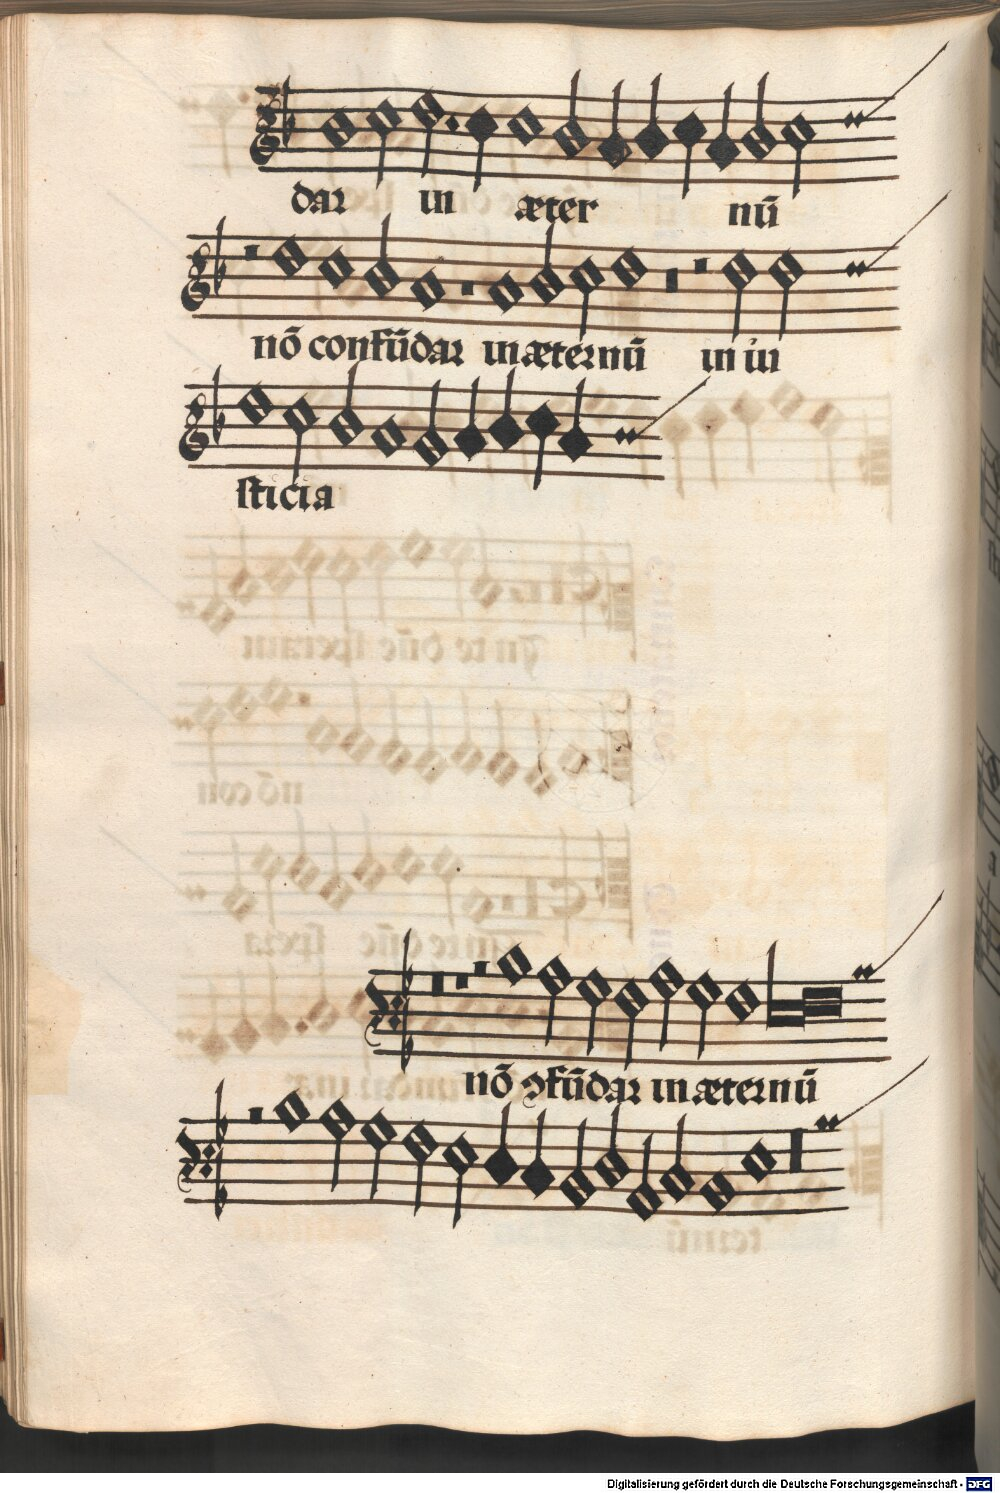 dar in æter nū
nō confūdar in æternū in iu
sticia
nō ꝯfūdar in æternū
Digitalisierung gefördert durch die Deutsche Forschungsgemeinschaft - DFG